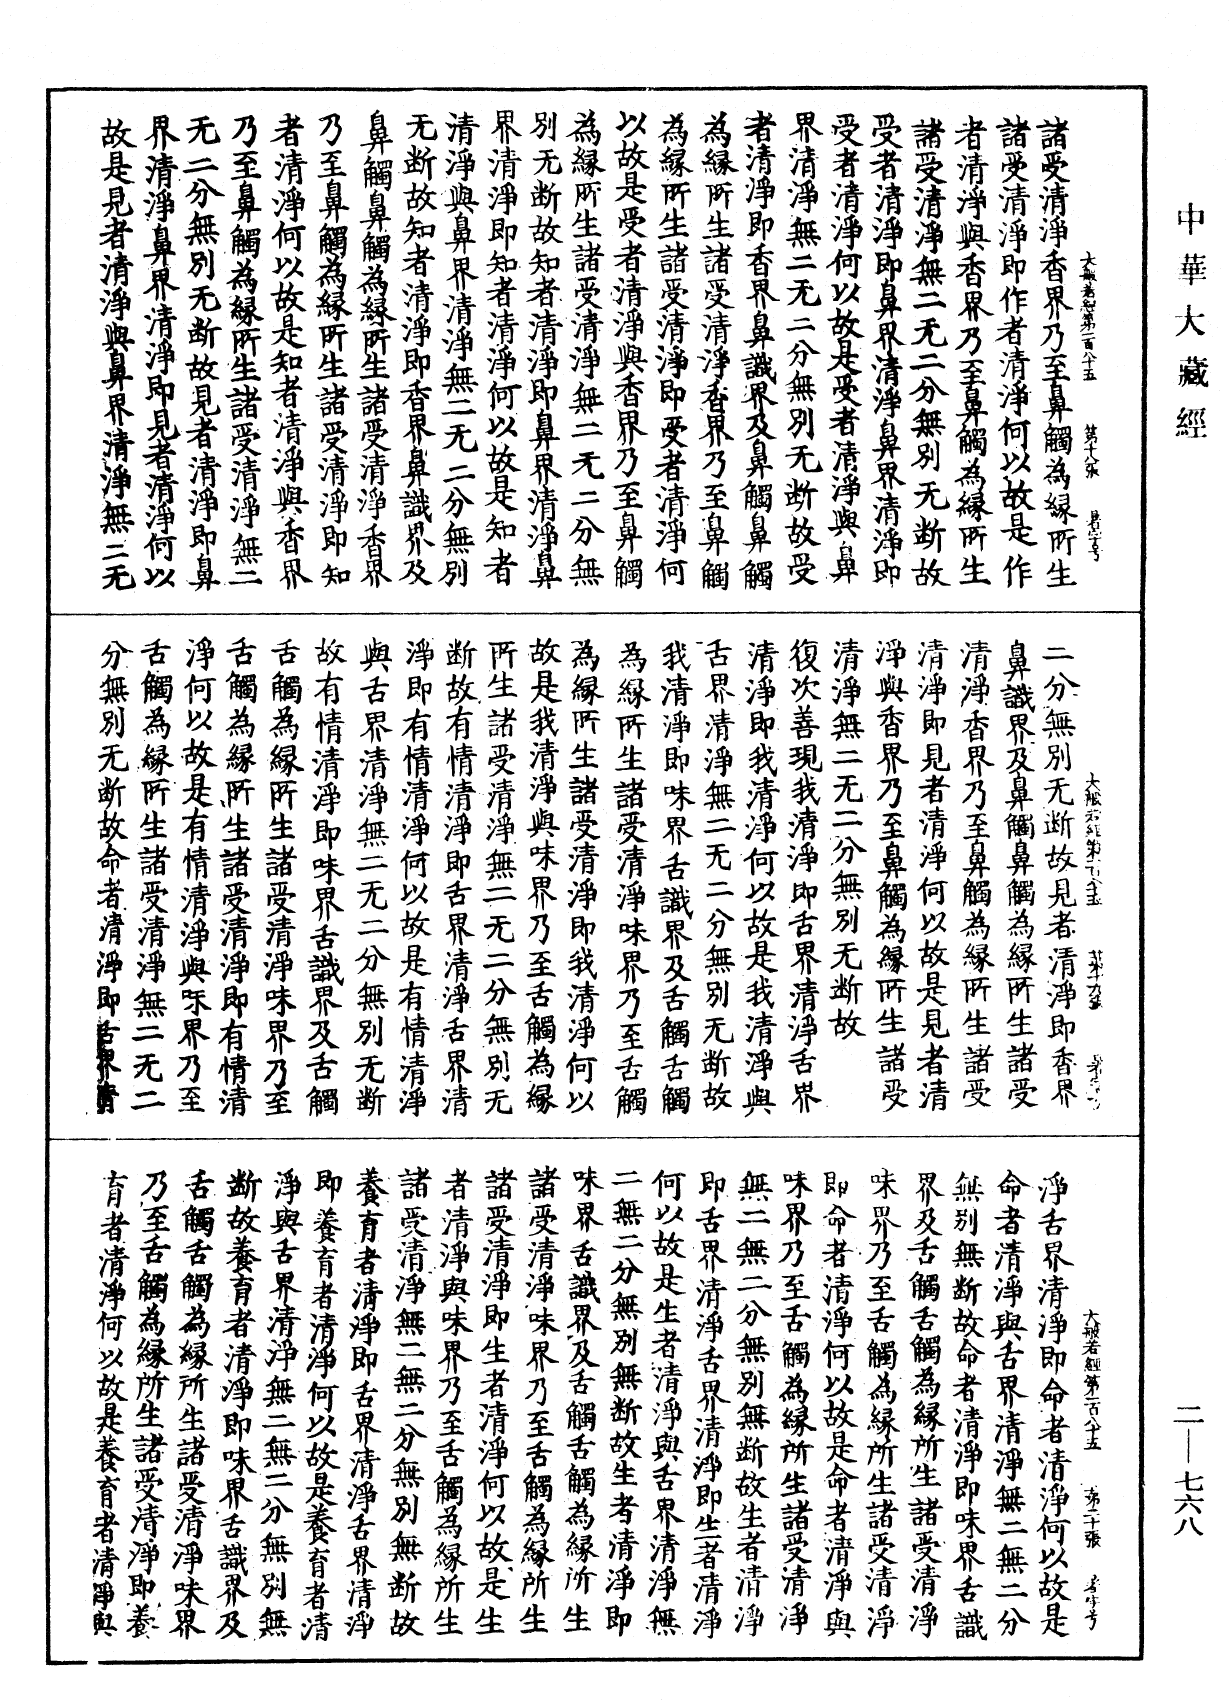 中華大藏經
諸受清淨香界乃至鼻觸為緣所生
諸受清淨即作者清淨何以故是作
者清淨與香界乃至鼻觸為緣所生
諸受清淨無二无二分無別无断故
受者清淨即鼻界清淨鼻界清淨即
受者清淨何以故是受者清淨與鼻
界清淨無二无二分無別无断故受
者清淨即香界鼻識界及鼻觸鼻觸
為緣所生諸受清淨香界乃至鼻觸
為緣所生諸受清淨即受者清淨何
以故是受者清淨與香界乃至鼻觸
為緣所生諸受清淨無二无二分無
別无断故知者清淨即鼻界清淨鼻
界清淨即知者清淨何以故是知者
清淨與鼻界清淨無二无二分無別
无断故知者清淨即香界鼻識界及
鼻觸鼻觸為緣所生諸受清淨香界
乃至鼻觸為緣所生諸受清淨即知
者清淨何以故是知者清淨與香界
乃至鼻觸為緣所生諸受清淨無二
无二分無別无断故見者清淨即鼻
界清淨鼻界清淨即見者清淨何以
故是見者清淨與鼻界清淨無二无
大般若經第一百八十五 第十八張
二分無別无断故見者清淨即香界
鼻識界及鼻觸鼻觸為緣所生諸受
清淨香界乃至鼻觸為緣所生諸受
清淨即見者清淨何以故是見者清
淨與香界乃至鼻觸為緣所生諸受
清淨無二无二分無別无断故
復次善現我清淨即舌界清淨舌界
清淨即我清淨何以故是我清淨與
舌界清淨無二无二分無別无断故
我清淨即味界舌識界及舌觸舌觸
為緣所生諸受清淨味界乃至舌觸
為緣所生諸受清淨即我清淨何以
故是我清淨與味界乃至舌觸為緣
所生諸受清淨無二无二分無別无
断故有情清淨即舌界清淨舌界清
淨即有情清淨何以故是有情清淨
與舌界清淨無二无二分無別无断
故有情清淨即味界舌識界及舌觸
舌觸為緣所生諸受清淨味界乃至
舌觸為緣所生諸受清淨即有情清
淨何以故是有情清淨與味界乃至
舌觸為緣所生諸受清淨無二无二
分無別无断故命者清淨即舌界清
大般若經第一百八十五 第十九張
淨舌界清淨即命者清淨何以故是
命者清淨與舌界清淨無二無二分
無別無断故命者清淨即味界舌識
界及舌觸舌觸為緣所生諸受清淨
味界乃至舌觸為緣所生諸受清淨
即命者清淨何以故是命者清淨與
味界乃至舌觸為緣所生諸受清淨
無二無二分無別無断故生者清淨
即舌界清淨舌界清淨即生者清淨
何以故是生者清淨與舌界清淨無
二無二分無別無断故生者清淨即
味界舌識界及舌觸舌觸為緣所生
諸受清淨味界乃至舌觸為緣所生
諸受清淨即生者清淨何以故是生
者清淨與味界乃至舌觸為緣所生
諸受清淨無二無二分無別無断故
養育者清淨即舌界清淨舌界清淨
即養育者清淨何以故是養育者清
淨與舌界清淨無二無二分無別無
断故養育者清淨即味界舌識界及
舌觸舌觸為緣所生諸受清淨味界
乃至舌觸為緣所生諸受清淨即養
育者清淨何以故是養育者清淨與
大般若經第一百八十五 第二十張
二—七六八